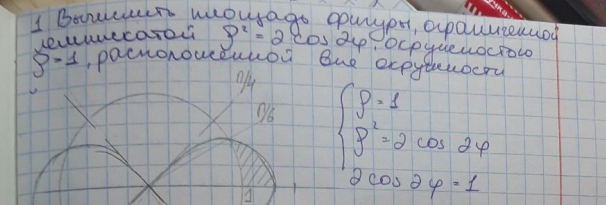 1. Вычислить площадь фигуры, ограниченной
лемнискатой ρ² = 2 cos 2φ, окружностью
ρ = 1, расположенной вне окружности
π/4
π/6
ρ = 1
ρ² = 2 cos 2φ
2 cos 2φ = 1
1